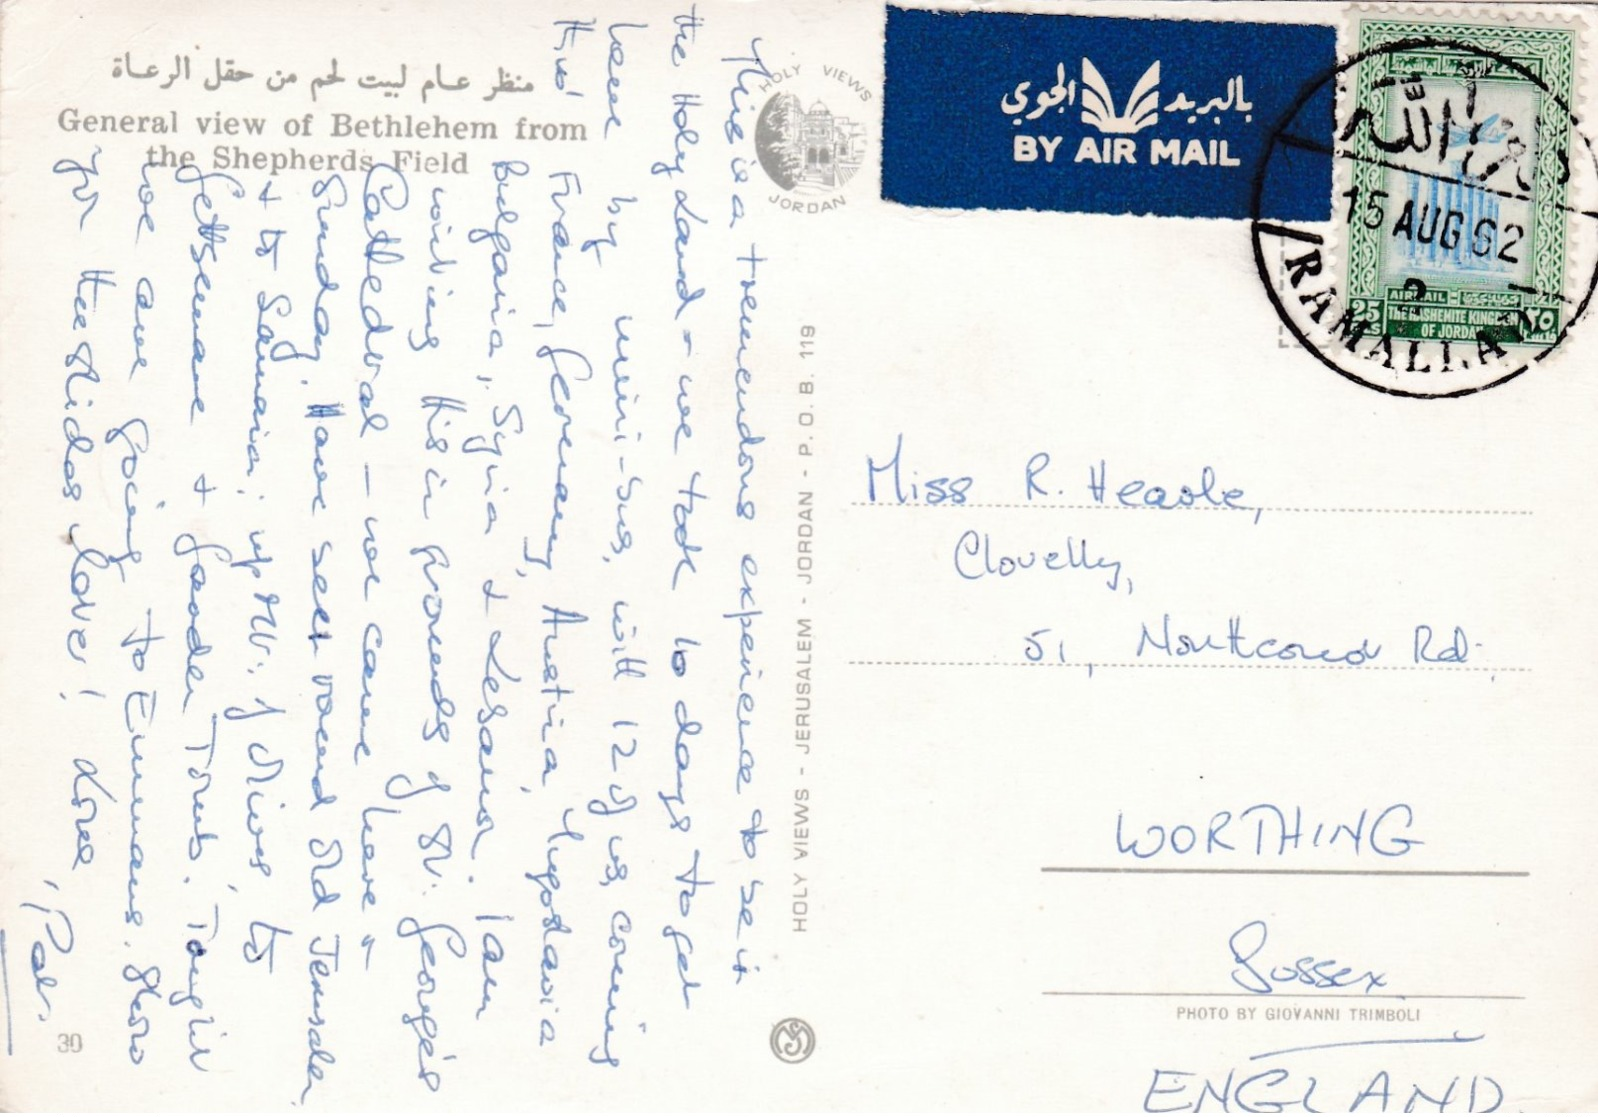 منظر عام لبيت لحم من حقل الرعاة
General view of Bethlehem from
the Shepherds Field
HOLY VIEWS
JORDAN
بالبريد الجوي
BY AIR MAIL
رام الله
15 AUG 62
2
RAMALLAH
AIRMAIL
25
FILS
THE HASHEMITE KINGDOM
OF JORDAN
٢٥
This is a tremendous experience to be in
the Holy Land - we took 10 days to get
here by mini-bus, with 12 of us, coming
thro' France, Germany, Austria, Yugoslavia
Bulgaria, Syria & Lebanon. I am
writing this in grounds of St. George's
Cathedral - we came here on
Sunday. Have seen round Old Jerusalem
& to Samaria; up Mt. of Olives, to
Gethsemane & Garden Tomb. Tonight
we are going to Emmaus. Shew
you the slides later! Love,
Pat.
30
HOLY VIEWS - JERUSALEM - JORDAN - P. O. B. 119
Miss R. Hearle,
Clovelly,
51, Rd.
WORTHING
Sussex
PHOTO BY GIOVANNI TRIMBOLI
ENGLAND